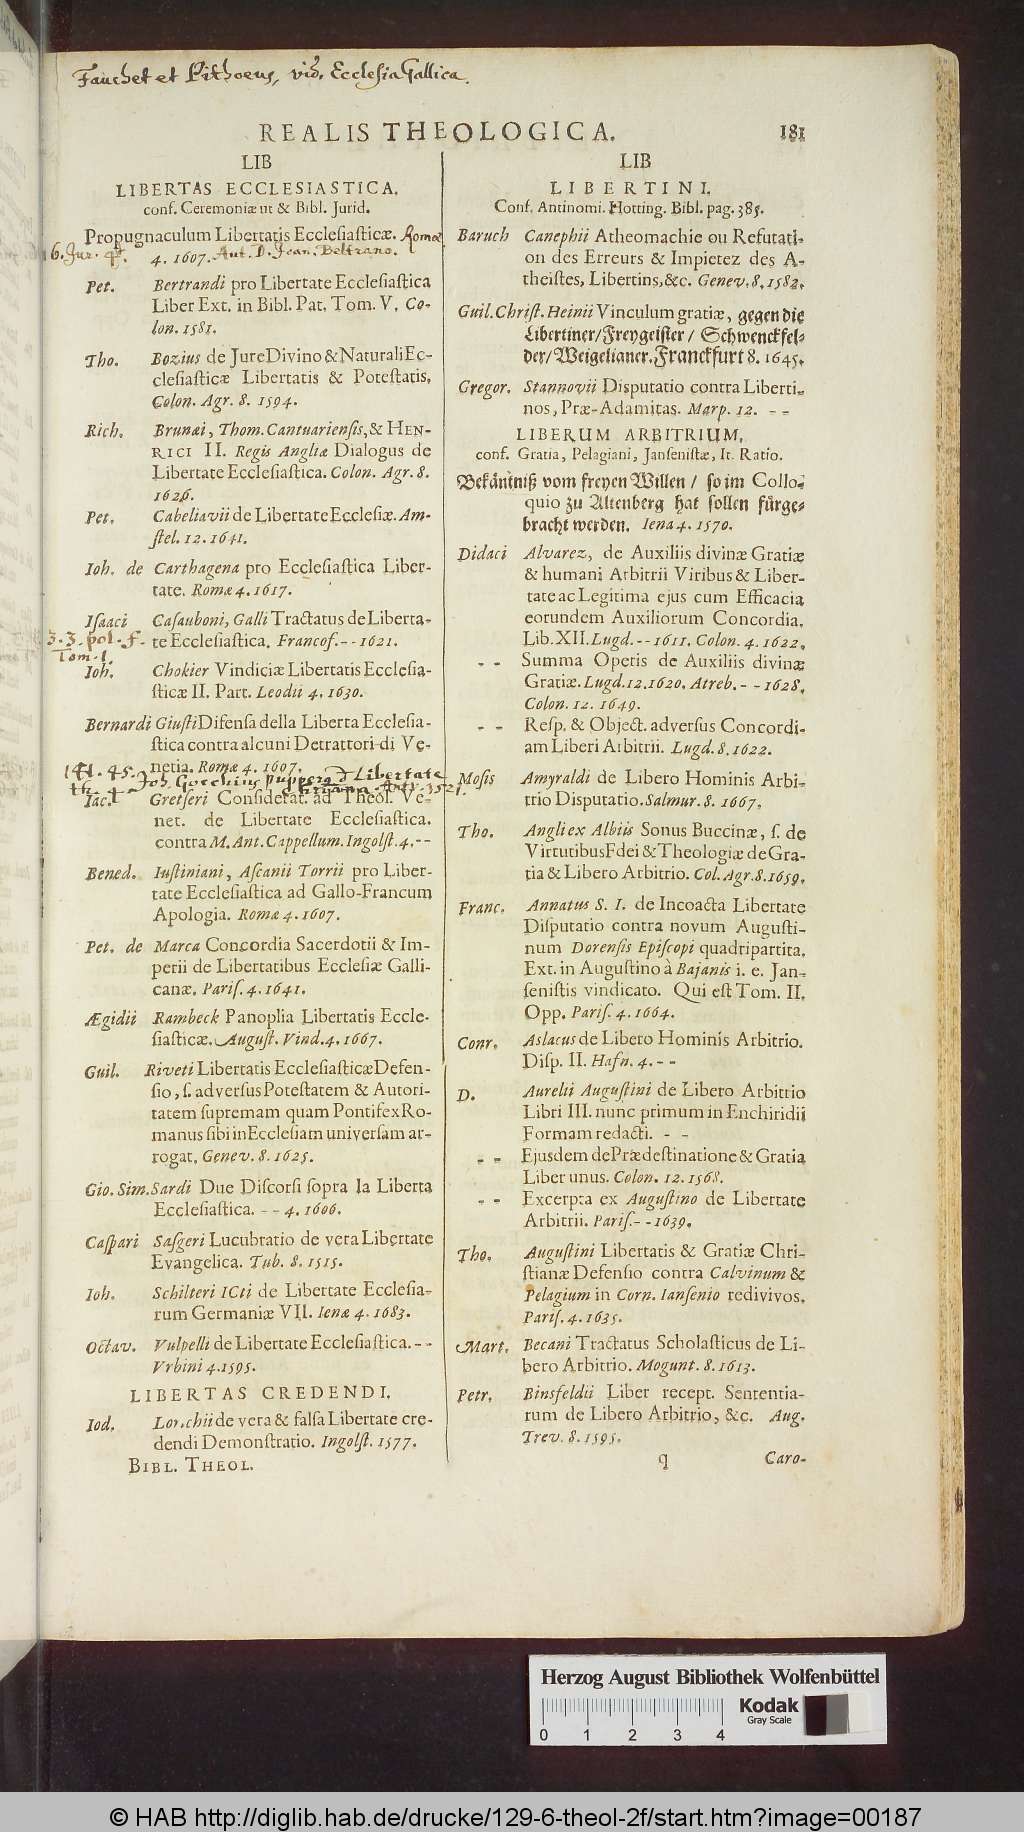 Fauchet et Pithoeus, vid. Ecclesia Gallica.
REALIS THEOLOGICA. 181
LIB
LIBERTAS ECCLESIASTICA.
conf. Ceremoniæ ut & Bibl. Jurid.
Propugnaculum Libertatis Ecclesiasticæ. Romæ
4. 1607. Aut. D. Jean. Beltrano.
16. Jur. 4º.
Pet. Bertrandi pro Libertate Ecclesiastica
Liber Ext. in Bibl. Pat. Tom. V. Co-
lon. 1581.
Tho. Bozius de Jure Divino & Naturali Ec-
clesiasticæ Libertatis & Potestatis.
Colon. Agr. 8. 1594.
Rich. Brunæi, Thom. Cantuariensis, & HEN-
RICI II. Regis Angliæ Dialogus de
Libertate Ecclesiastica. Colon. Agr. 8.
1626.
Pet. Cabeliavii de Libertate Ecclesiæ. Am-
stel. 12. 1641.
Ioh. de Carthagena pro Ecclesiastica Liber-
tate. Romæ 4. 1617.
Isaaci Casauboni, Galli Tractatus de Liberta-
te Ecclesiastica. Francof. - - 1621.
3. 3. pol. f.
Tom. 1.
Ioh. Chokier Vindiciæ Libertatis Ecclesia-
sticæ II. Part. Leodii 4. 1630.
Bernardi Giusti Difensa della Liberta Ecclesia-
stica contra alcuni Detrattori di Ve-
netia. Romæ 4. 1607.
141. 45. Joh. Gocchius pupperg d Libertate
th. 4.
Iac. Gretseri Considerat. ad Theol. Ve-
net. de Libertate Ecclesiastica.
contra M. Ant. Cappellum. Ingolst. 4. - -
Bened. Iustiniani, Ascanii Torrii pro Liber-
tate Ecclesiastica ad Gallo-Francum
Apologia. Romæ 4. 1607.
Pet. de Marca Concordia Sacerdotii & Im-
perii de Libertatibus Ecclesiæ Galli-
canæ. Paris. 4. 1641.
Ægidii Rambeck Panoplia Libertatis Eccle-
siasticæ. August. Vind. 4. 1667.
Guil. Riveti Libertatis Ecclesiasticæ Defen-
sio, s. adversus Potestatem & Autori-
tatem supremam quam Pontifex Ro-
manus sibi in Ecclesiam universam ar-
rogat. Genev. 8. 1625.
Gio. Sim. Sardi Due Discorsi sopra la Liberta
Ecclesiastica. - - 4. 1606.
Caspari Sasgeri Lucubratio de vera Libertate
Evangelica. Tub. 8. 1515.
Ioh. Schilteri ICti de Libertate Ecclesia-
rum Germaniæ VII. Ienæ 4. 1683.
Octav. Vulpelli de Libertate Ecclesiastica. - -
Vrbini 4. 1595.
LIBERTAS CREDENDI.
Iod. Lorichii de vera & falsa Libertate cre-
dendi Demonstratio. Ingolst. 1577.
BIBL. THEOL.
LIB
LIBERTINI.
Conf. Antinomi. Hotting. Bibl. pag. 385.
Baruch Canephii Atheomachie ou Refutati-
on des Erreurs & Impietez des A-
theistes, Libertins, &c. Genev. 8. 1582.
Guil. Christ. Heinii Vinculum gratiæ, gegen die
Libertiner/ Freygeister/ Schwenckfel-
der/ Weigelianer. Franckfurt 8. 1645.
Gregor. Stannovii Disputatio contra Liberti-
nos, Præ-Adamitas. Marp. 12. - -
LIBERUM ARBITRIUM.
conf. Gratia, Pelagiani, Jansenistæ, It. Ratio.
Bekäntniß vom freyen Willen/ so im Collo-
quio zu Altenberg hat sollen fürge-
bracht werden. Iena 4. 1570.
Didaci Alvarez, de Auxiliis divinæ Gratiæ
& humani Arbitrii Viribus & Liber-
tate ac Legitima ejus cum Efficacia
eorundem Auxiliorum Concordia.
Lib. XII. Lugd. - - 1611. Colon. 4. 1622.
- - Summa Operis de Auxiliis divinæ
Gratiæ. Lugd. 12. 1620. Atreb. - - 1628.
Colon. 12. 1649.
- - Resp. & Object. adversus Concordi-
am Liberi Arbitrii. Lugd. 8. 1622.
Mosis Amyraldi de Libero Hominis Arbi-
trio Disputatio. Salmur. 8. 1667.
Tho. Angli ex Albiis Sonus Buccinæ, s. de
Virtutibus Fdei & Theologiæ de Gra-
tia & Libero Arbitrio. Col. Agr. 8. 1659.
Franc. Annatus S. I. de Incoacta Libertate
Disputatio contra novum Augusti-
num Dorensis Episcopi quadripartita.
Ext. in Augustino à Bajanis i. e. Jan-
senistis vindicato. Qui est Tom. II.
Opp. Paris. 4. 1664.
Conr. Aslacus de Libero Hominis Arbitrio.
Disp. II. Hafn. 4. - -
D. Aurelii Augustini de Libero Arbitrio
Libri III. nunc primum in Enchiridii
Formam redacti. - -
- - Ejusdem de Prædestinatione & Gratia
Liber unus. Colon. 12. 1568.
- - Excerpta ex Augustino de Libertate
Arbitrii. Paris. - - 1639.
Tho. Augustini Libertatis & Gratiæ Chri-
stianæ Defensio contra Calvinum &
Pelagium in Corn. Iansenio redivivos.
Paris. 4. 1635.
Mart. Becani Tractatus Scholasticus de Li-
bero Arbitrio. Mogunt. 8. 1613.
Petr. Binsfeldii Liber recept. Sententia-
rum de Libero Arbitrio, &c. Aug.
Trev. 8. 1595.
q Caro-
Herzog August Bibliothek Wolfenbüttel
Kodak
Gray Scale
0 1 2 3 4
© HAB http://diglib.hab.de/drucke/129-6-theol-2f/start.htm?image=00187